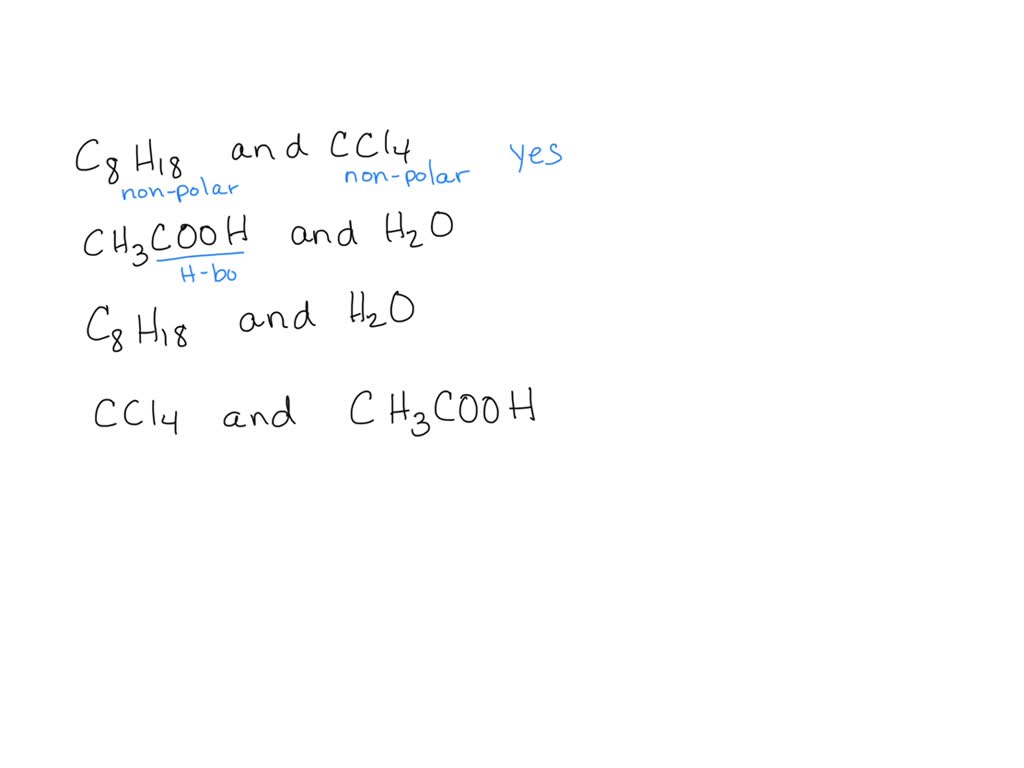 C₈H₁₈ and CCl₄ yes
non-polar non-polar
CH₃COOH and H₂O
H-bo
C₈H₁₈ and H₂O
CCl₄ and CH₃COOH